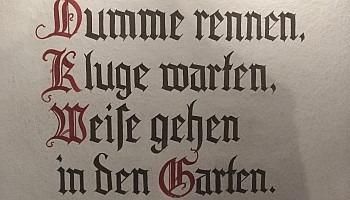 Dumme rennen,
Kluge warten,
Weiſe gehen
in den Garten.